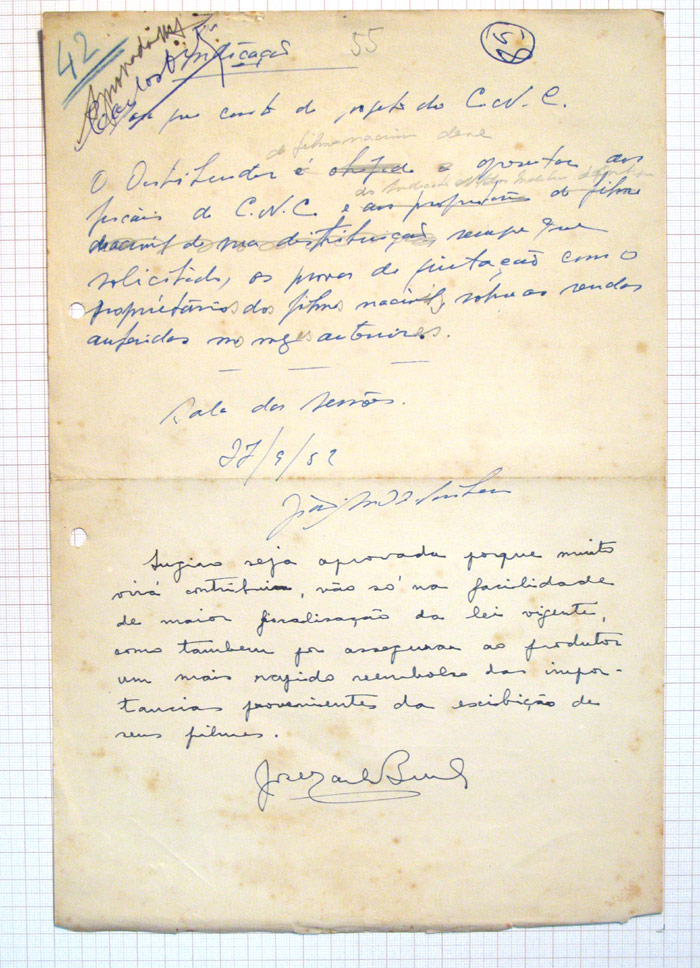 42
55
58
Aprovada
Indicação
que conste do projeto do C.N.C.
de filme nacional deve
O Distribuidor é obrigado a apresentar aos
do Sindicato
fiscais do C.N.C. e aos proprietários do filme
nacional de sua distribuição, sempre que
solicitado, as provas de quitação com o
proprietários dos filmes nacionais, sobre as rendas
auferidas nos mezes anteriores.
Sala das Sessões.
27/9/52
Sugiro seja aprovada porque muito
virá contribuir, não só na facilidade
de maior fiscalisação da lei vigente,
como tambem por assegurar ao produtor
um mais rapido reembolso das impor-
tancias provenientes da exibição de
seus filmes.